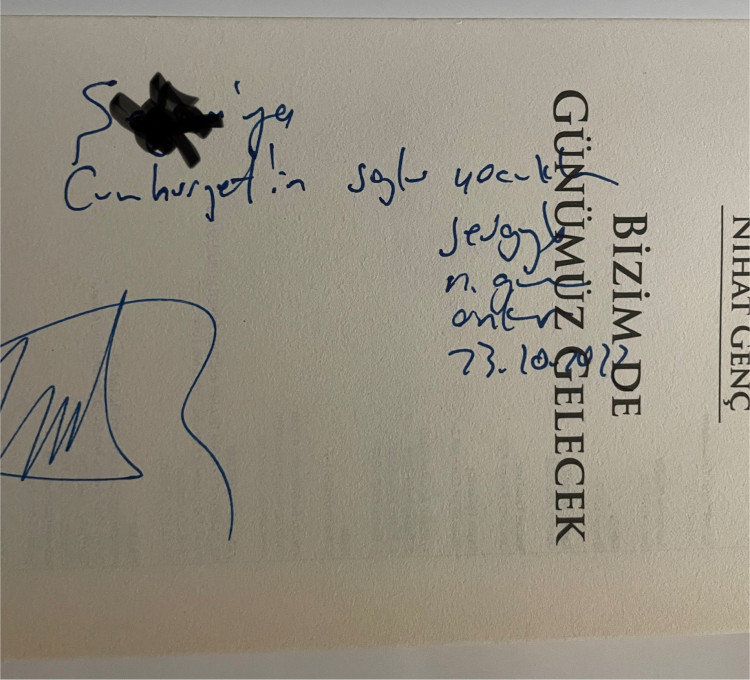 NİHAT GENÇ
BİZİM DE
GÜNÜMÜZ GELECEK
Cumhuriyet'in soylu çocukları
sevgiyle
n. genç
ankara